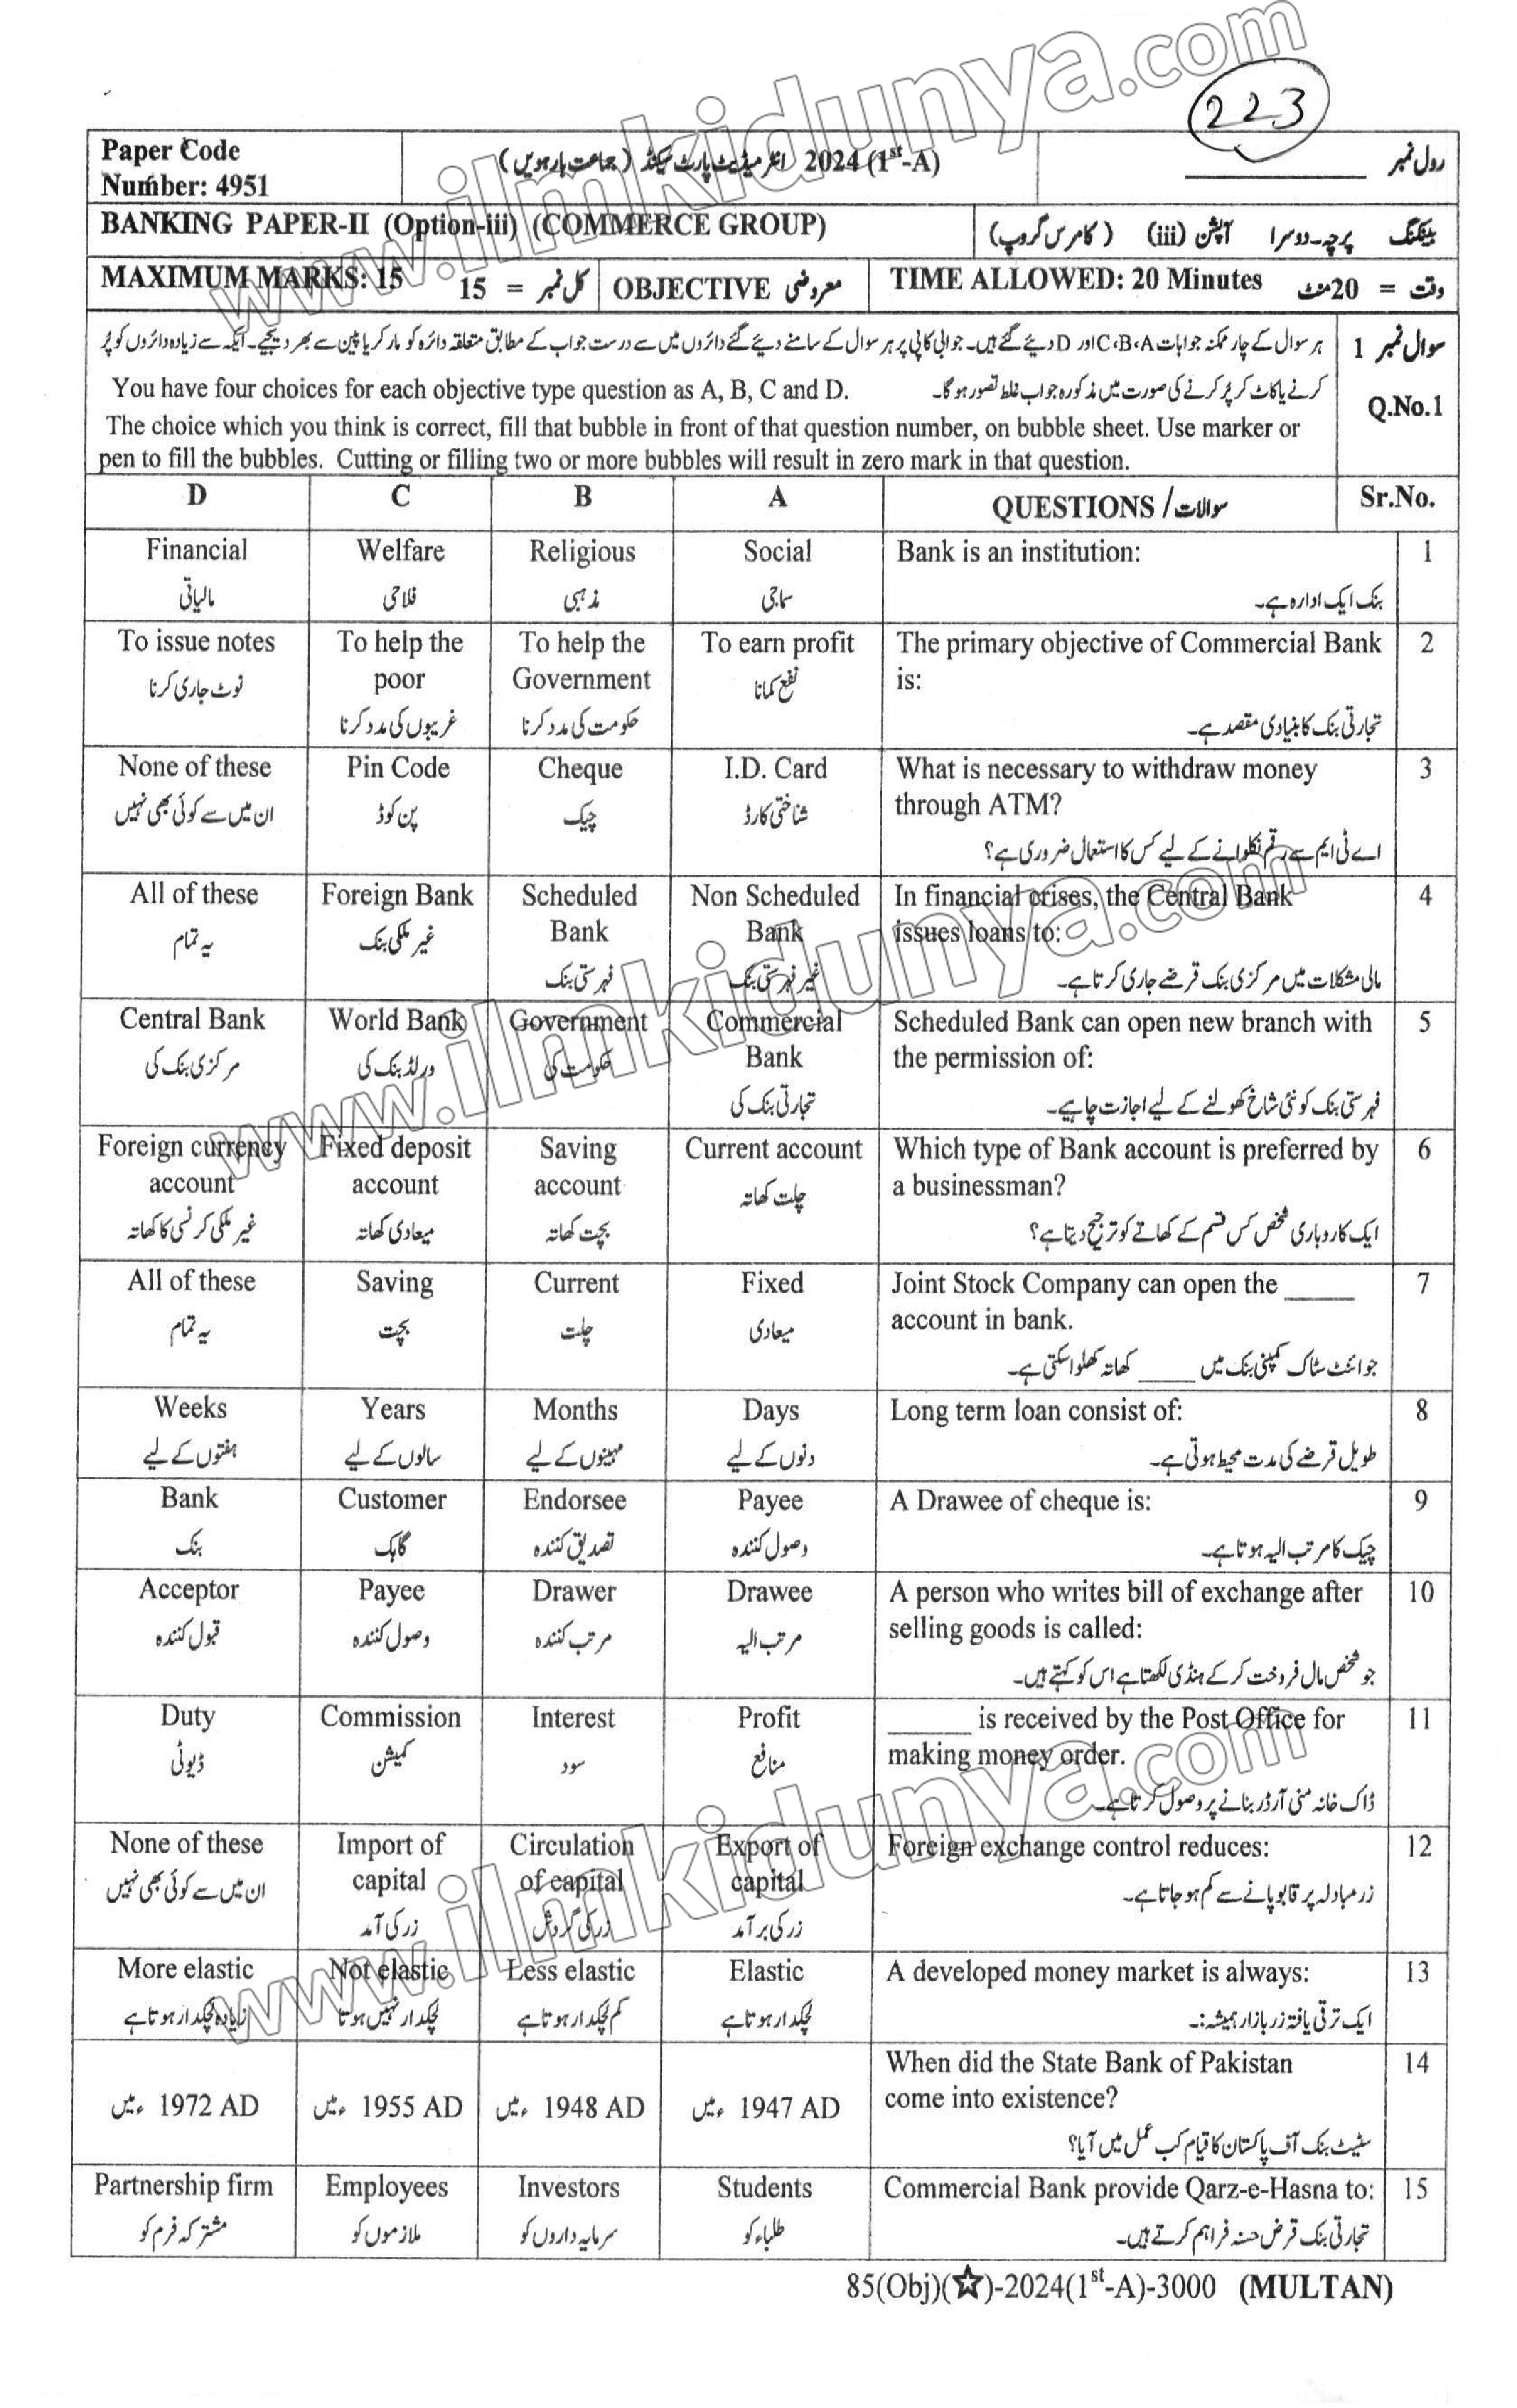 www.ilmkidunya.com
223
Paper Code
Number: 4951
انٹرمیڈیٹ پارٹ سیکنڈ (جماعت بارہویں) 2024 (1st-A)
رول نمبر ________
BANKING PAPER-II (Option-iii) (COMMERCE GROUP)
بینکنگ پرچہ۔دوسرا آپشن (iii) (کامرس گروپ)
MAXIMUM MARKS: 15
کل نمبر = 15
OBJECTIVE معروضی
TIME ALLOWED: 20 Minutes
وقت = 20 منٹ
سوال نمبر 1
Q.No.1
ہر سوال کے چار ممکنہ جوابات A،B،C اور D دیئے گئے ہیں۔ جوابی کاپی پر ہر سوال کے سامنے دیئے گئے دائروں میں سے درست جواب کے مطابق متعلقہ دائرہ کو مارکر یا پین سے بھر دیجیے۔ ایک سے زیادہ دائروں کو پُر
کرنے یا کاٹ کر پُر کرنے کی صورت میں مذکورہ جواب غلط تصور ہو گا۔
You have four choices for each objective type question as A, B, C and D.
The choice which you think is correct, fill that bubble in front of that question number, on bubble sheet. Use marker or
pen to fill the bubbles. Cutting or filling two or more bubbles will result in zero mark in that question.
D C B A QUESTIONS / سوالات Sr.No.
Financial Welfare Religious Social Bank is an institution: 1
مالیاتی فلاحی مذہبی سماجی بنک ایک ادارہ ہے۔
To issue notes To help the To help the To earn profit The primary objective of Commercial Bank 2
poor Government is:
نوٹ جاری کرنا غریبوں کی مدد کرنا حکومت کی مدد کرنا نفع کمانا تجارتی بنک کا بنیادی مقصد ہے۔
None of these Pin Code Cheque I.D. Card What is necessary to withdraw money 3
through ATM?
ان میں سے کوئی بھی نہیں پن کوڈ چیک شناختی کارڈ اے ٹی ایم سے رقم نکلوانے کے لیے کس کا استعمال ضروری ہے؟
All of these Foreign Bank Scheduled Non Scheduled In financial crises, the Central Bank 4
Bank Bank issues loans to:
یہ تمام غیر ملکی بنک فہرستی بنک غیر فہرستی بنک مالی مشکلات میں مرکزی بنک قرضے جاری کرتا ہے۔
Central Bank World Bank Government Commercial Scheduled Bank can open new branch with 5
Bank the permission of:
مرکزی بنک کی ورلڈ بنک کی حکومت کی تجارتی بنک کی فہرستی بنک کو نئی شاخ کھولنے کے لیے اجازت چاہیے۔
Foreign currency Fixed deposit Saving Current account Which type of Bank account is preferred by 6
account account account a businessman?
غیر ملکی کرنسی کا کھاتہ میعادی کھاتہ بچت کھاتہ چلت کھاتہ ایک کاروباری شخص کس قسم کے کھاتے کو ترجیح دیتا ہے؟
All of these Saving Current Fixed Joint Stock Company can open the _____ 7
account in bank.
یہ تمام بچت چلت میعادی جوائنٹ سٹاک کمپنی بنک میں ____ کھاتہ کھلوا سکتی ہے۔
Weeks Years Months Days Long term loan consist of: 8
ہفتوں کے لیے سالوں کے لیے مہینوں کے لیے دنوں کے لیے طویل قرضے کی مدت محیط ہوتی ہے۔
Bank Customer Endorsee Payee A Drawee of cheque is: 9
بنک گاہک تصدیق کنندہ وصول کنندہ چیک کا مرتب الیہ ہوتا ہے۔
Acceptor Payee Drawer Drawee A person who writes bill of exchange after 10
selling goods is called:
قبول کنندہ وصول کنندہ مرتب کنندہ مرتب الیہ جو شخص مال فروخت کر کے ہنڈی لکھتا ہے اس کو کہتے ہیں۔
Duty Commission Interest Profit ______ is received by the Post Office for 11
making money order.
ڈیوٹی کمیشن سود منافع ڈاک خانہ منی آرڈر بنانے پر وصول کرتا ہے۔
None of these Import of Circulation Export of Foreign exchange control reduces: 12
capital of capital capital
ان میں سے کوئی بھی نہیں زر کی آمد زر کی گردش زر کی برآمد زرمبادلہ پر قابو پانے سے کم ہو جاتا ہے۔
More elastic Not elastic Less elastic Elastic A developed money market is always: 13
زیادہ لچکدار ہوتا ہے لچکدار نہیں ہوتا کم لچکدار ہوتا ہے لچکدار ہوتا ہے ایک ترقی یافتہ زر بازار ہمیشہ:۔
When did the State Bank of Pakistan 14
come into existence?
1972 AD ء میں 1955 AD ء میں 1948 AD ء میں 1947 AD ء میں
سٹیٹ بنک آف پاکستان کا قیام کب عمل میں آیا؟
Partnership firm Employees Investors Students Commercial Bank provide Qarz-e-Hasna to: 15
مشترکہ فرم کو ملازموں کو سرمایہ داروں کو طلباء کو تجارتی بنک قرض حسنہ فراہم کرتے ہیں۔
85(Obj)(☆)-2024(1st-A)-3000 (MULTAN)
www.ilmkidunya.com
www.ilmkidunya.com